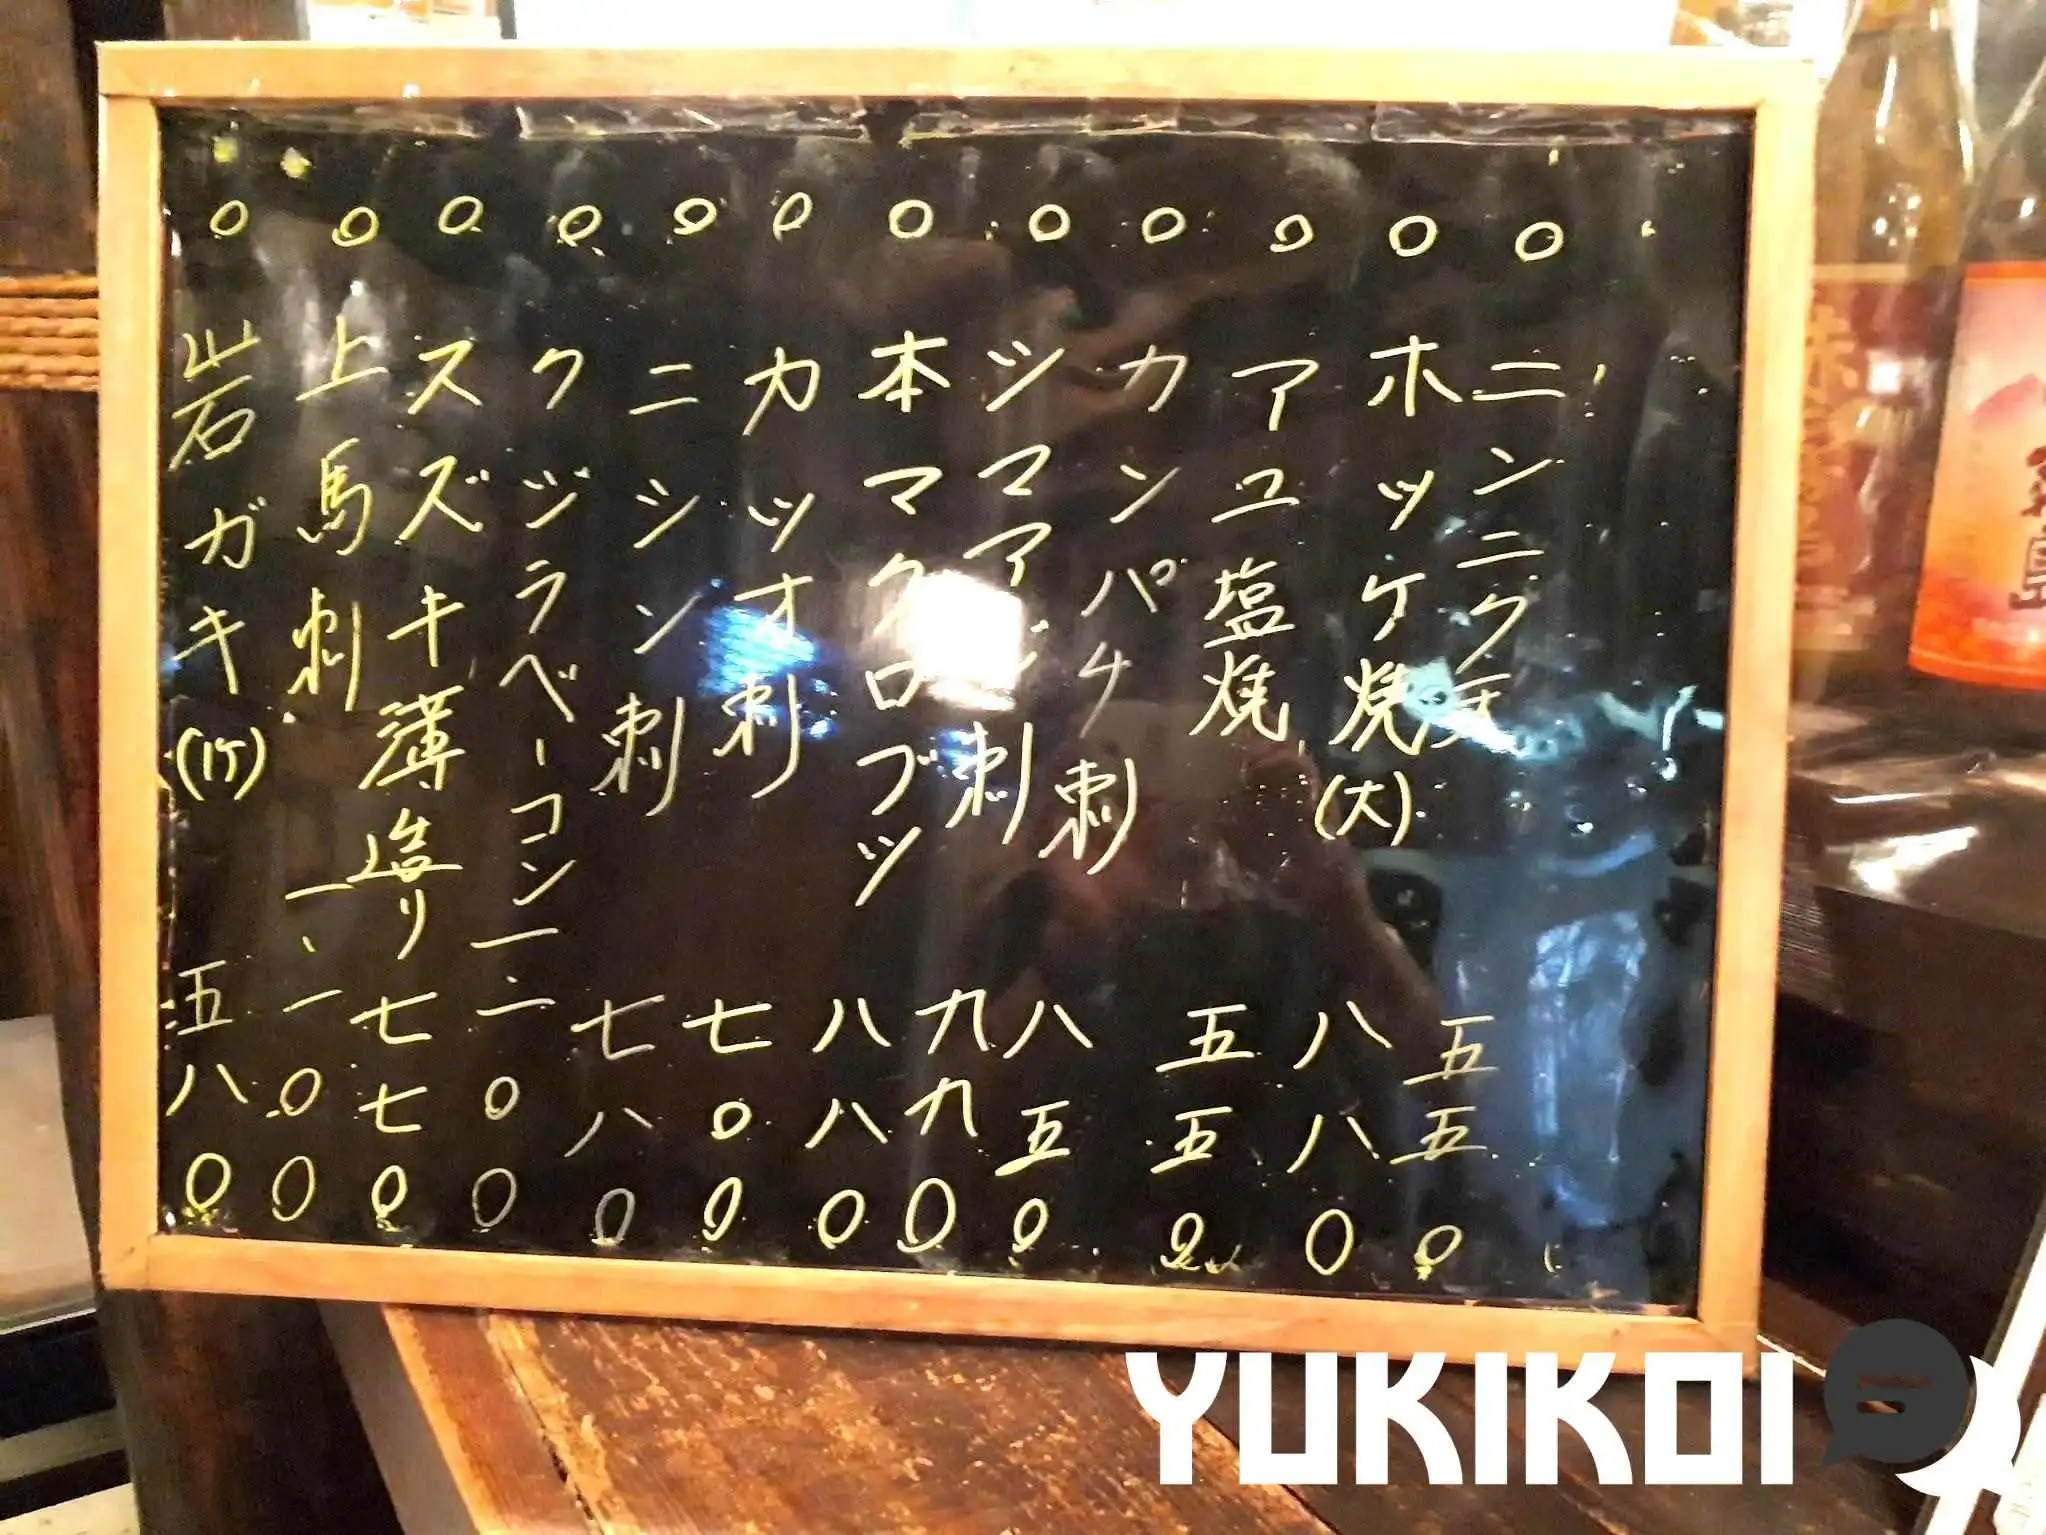 ○ ニンニク 五五〇
○ ホッケ焼(大) 八八〇
○ アユ塩焼 五五〇
○ カンパチ刺 八五〇
○ シマアジ刺 九九〇
○ 本マグロブツ 八八〇
○ カツオ刺 七〇〇
○ ニシン刺 七八〇
○ クジラベーコン 一二〇〇
○ スズキ薄造り 七七〇
○ 上馬刺 一、一〇〇
○ 岩ガキ(1ケ) 五八〇
YUKIKOI